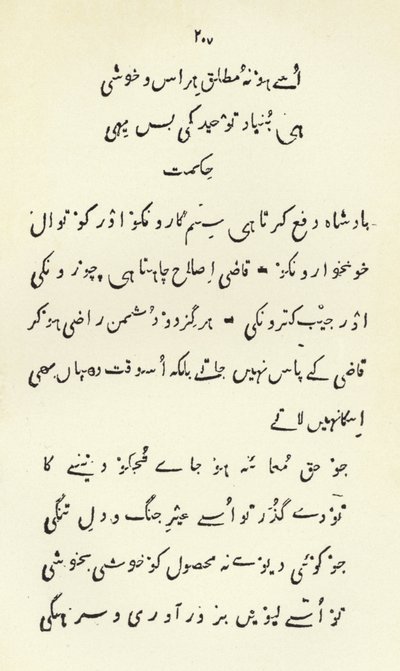 ٢٠٧
اُسے ہو نہ مطلق ہراس و خوشی
ہی بُنیاد توحید کی بس یہی
حِکمت
بادشاہ دفع کرتا ہی سِتم گارونکو اَور کوتوال
خونخوارونکو - قاضی اِصلاح چاہتا ہی چورونکی
اَور جیب کترونکی - ہرگز دو دُشمن راضی ہو کر
قاضی کے پاس نہیں جاتے بلکہ اُسوقت دھیان بھی
اِسکا نہیں لاتے
جو حق مُعائنہ ہو جاے تُجھکو دینے کا
تو دے گُذر تو اُسے بے جنگ و دل تنگی
جو کوئی دیوے نہ محصول کو خوشی بخوشی
تو اُسے لیویں بزور آوری و سرہنگی